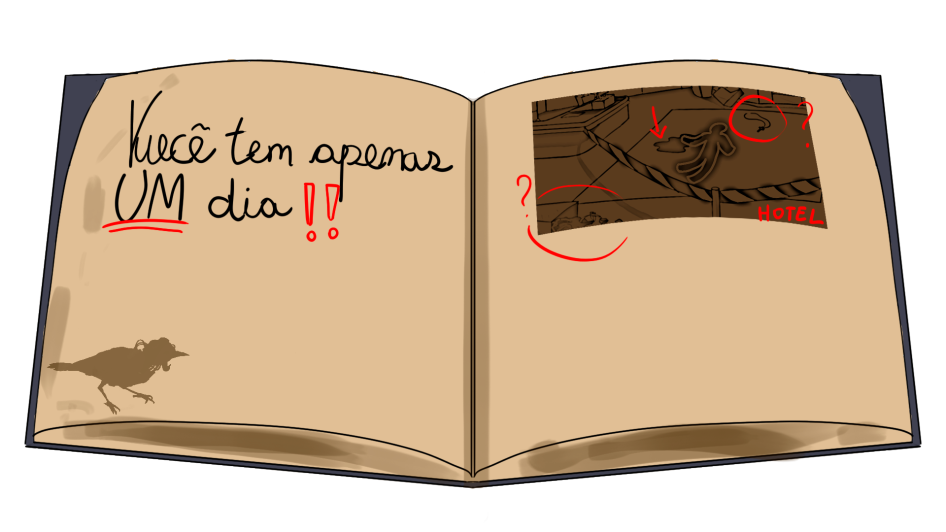 Você tem apenas
UM dia !!
?
?
HOTEL